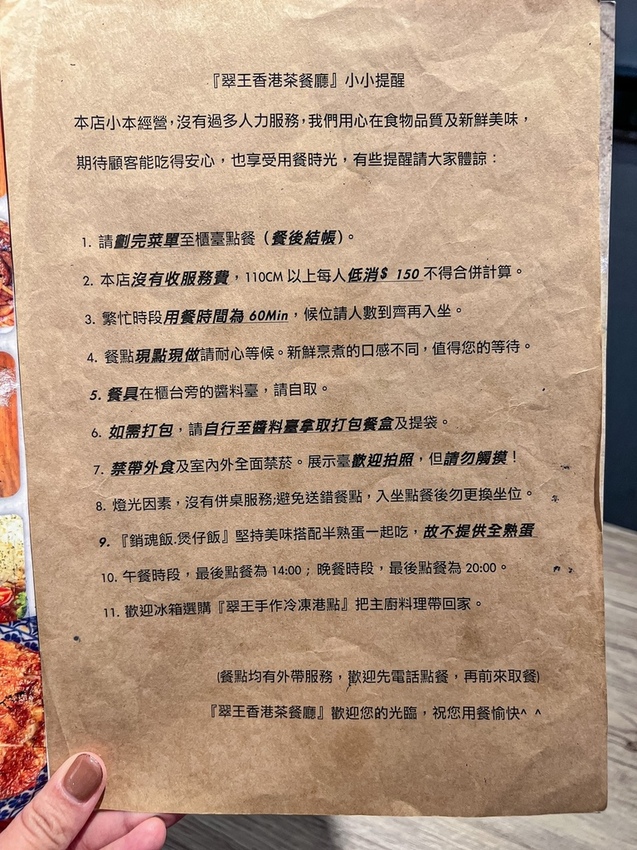 『翠王香港茶餐廳』小小提醒
本店小本經營，沒有過多人力服務，我們用心在食物品質及新鮮美味，
期待顧客能吃得安心，也享受用餐時光，有些提醒請大家體諒：
1. 請劃完菜單至櫃臺點餐（餐後結帳）。
2. 本店沒有收服務費，110CM 以上每人低消$ 150 不得合併計算。
3. 繁忙時段用餐時間為 60Min，候位請人數到齊再入坐。
4. 餐點現點現做請耐心等候。新鮮烹煮的口感不同，值得您的等待。
5. 餐具在櫃台旁的醬料臺，請自取。
6. 如需打包，請自行至醬料臺拿取打包餐盒及提袋。
7. 禁帶外食及室內外全面禁菸。展示臺歡迎拍照，但請勿觸摸！
8. 燈光因素，沒有併桌服務;避免送錯餐點，入坐點餐後勿更換坐位。
9. 『銷魂飯.煲仔飯』堅持美味搭配半熟蛋一起吃，故不提供全熟蛋
10. 午餐時段，最後點餐為 14:00；晚餐時段，最後點餐為 20:00。
11. 歡迎冰箱選購『翠王手作冷凍港點』把主廚料理帶回家。
(餐點均有外帶服務，歡迎先電話點餐，再前來取餐)
『翠王香港茶餐廳』歡迎您的光臨，祝您用餐愉快^ ^